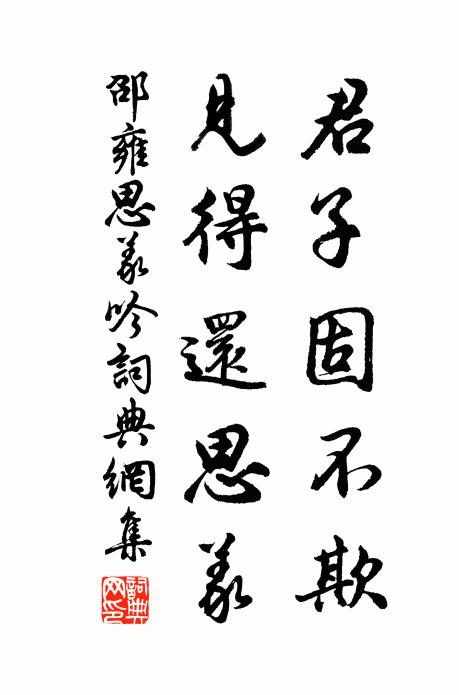 君子固不欺
見得還思義
邵雍思義吟詞典網集
詞典網印